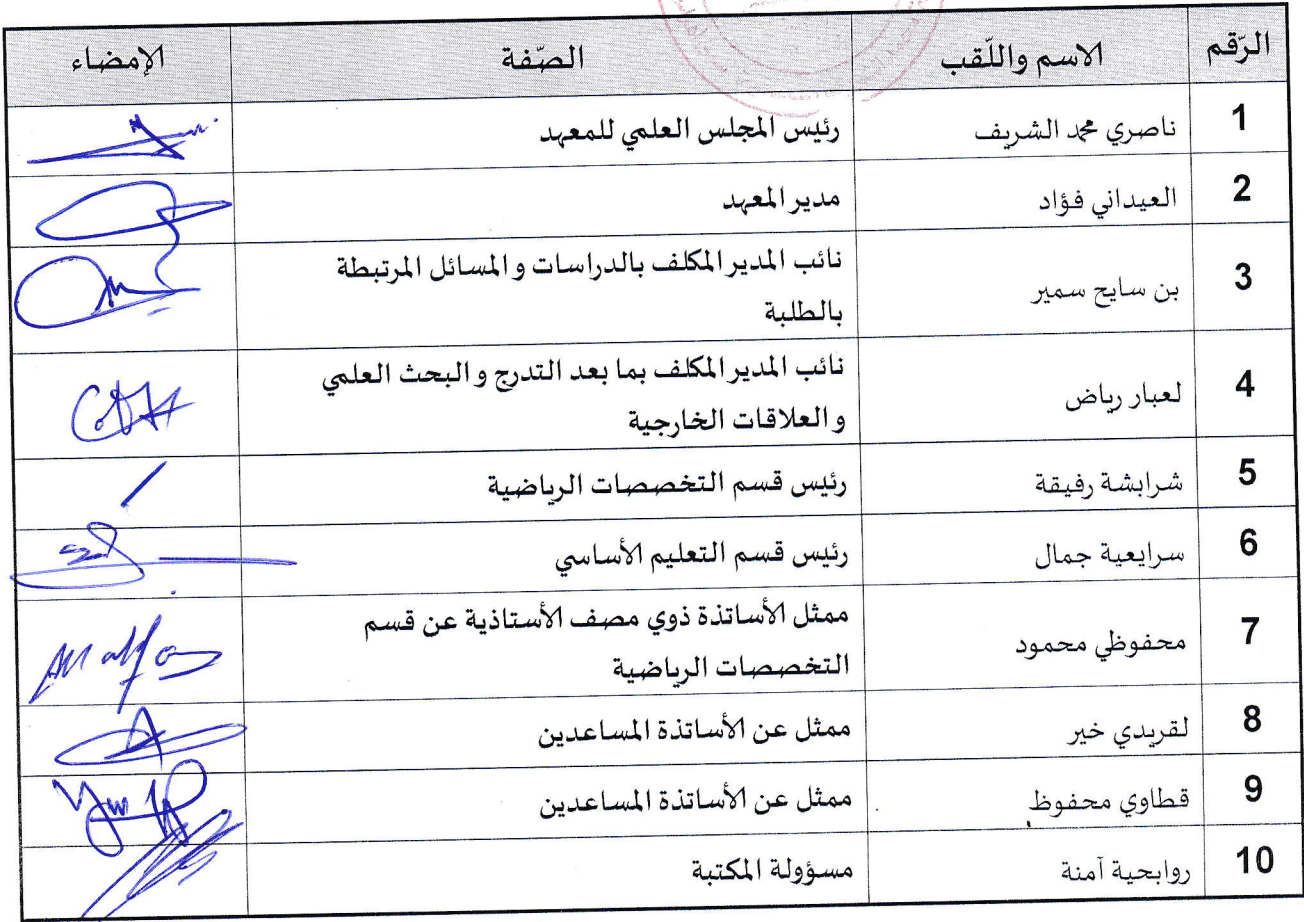 الرّقم الاسم واللّقب الصّفة الإمضاء
1 ناصري محمد الشريف رئيس المجلس العلمي للمعهد
2 العيداني فؤاد مدير المعهد
3 بن سايح سمير نائب المدير المكلف بالدراسات والمسائل المرتبطة
بالطلبة
4 لعبار رياض نائب المدير المكلف بما بعد التدرج والبحث العلمي
والعلاقات الخارجية
5 شرابشة رفيقة رئيس قسم التخصصات الرياضية
6 سرايعية جمال رئيس قسم التعليم الأساسي
7 محفوظي محمود ممثل الأساتذة ذوي مصف الأستاذية عن قسم
التخصصات الرياضية
8 لقريدي خير ممثل عن الأساتذة المساعدين
9 قطاوي محفوظ ممثل عن الأساتذة المساعدين
10 روابحية آمنة مسؤولة المكتبة